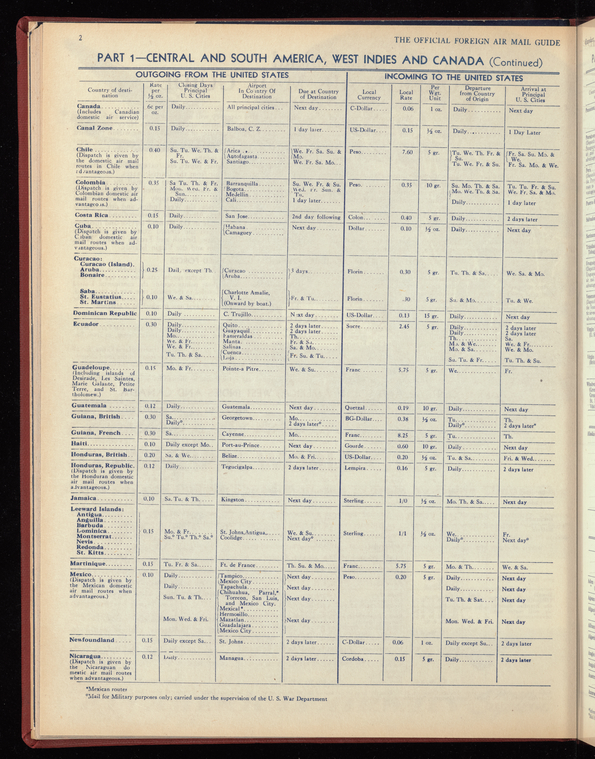 2
THE OFFICIAL FOREIGN AIR MAIL GUIDE
PART 1—CENTRAL AND SOUTH AMERICA, WEST INDIES AND CANADA (Continued)
OUTGOING FROM THE UNITED STATES INCOMING TO THE UNITED STATES
Country of desti- nation Rate per ½ oz. Closing Days Principal U. S. Cities Airport In Country Of Destination Due at Country of Destination Local Currency Local Rate Per Wgt. Unit Departure from Country of Origin Arrival at Principal U. S. Cities
Canada 6c per oz. Daily All principal cities Next day C-Dollar 0.06 1 oz. Daily Next day
(Includes Canadian
domestic air service)
Canal Zone 0.15 Daily Balboa, C. Z. 1 day later US-Dollar 0.15 ½ oz. Daily 1 Day Later
Chile 0.40 Su. Tu. We. Th. & Fr. Arica We. Fr. Sa. Su. & Mo. Peso 7.60 5 gr. Tu. We. Th. Fr. & Su. Fr. Sa. Su. Mo. & We.
(Dispatch is given by Antofagasta
the domestic air mail Su. Tu. We. & Fr. Santiago We. Fr. Sa. Mo. Tu. We. Fr. & Su. Fr. Sa. Mo. & We.
routes in Chile when
advantageous.)
Colombia 0.35 Su. Tu. Th. & Fr. Barranquilla Su. We. Fr. & Su. Peso 0.35 10 gr. Su. Mo. Th. & Sa. Tu. Tu. Fr. & Sa.
(Dispatch is given by Bogota Mo. We. Tu. & Sa. We. Fr. Sa. & Mo.
Colombian domestic air Medellin
mail routes when ad- Daily Cali 1 day later Daily 1 day later
vantageous.)
Costa Rica 0.15 Daily San Jose 2nd day following Colon 0.40 5 gr. Daily 2 days later
Cuba 0.10 Daily Habana Next day Dollar 0.10 ½ oz. Daily Next day
(Dispatch is given by Camaguey
Cuban domestic air
mail routes when ad-
vantageous.)
Curacao:
Curacao (Island)
Aruba 0.25 Daily except Th. Curacao 3 days Florin 0.30 5 gr. Tu. Th. & Sa. We. Sa. & Mo.
Bonaire Aruba
Saba Charlotte Amalie,
St. Eustatius 0.10 We. & Sa. V. I. Fr. & Tu. Florin .30 5 gr. Su. & Mo. Tu. & We.
St. Martins (Onward by boat.)
Dominican Republic 0.10 Daily C. Trujillo Next day US-Dollar 0.13 15 gr. Daily Next day
Ecuador 0.30 Daily Quito 2 days later Sucre 2.45 5 gr. Daily 2 days later
Daily Guayaquil 2 days later Daily 2 days later
Mo. Esmeraldas Th. Th. Sa.
We. & Fr. Manta Fr. & Sa. Mo. & We. We. & Fr.
We. & Fr. Salinas Sa. & Mo. Mo. & Sa. We. & Mo.
Tu. Th. & Sa. Cuenca Fr. Su. & Tu. Sa. Tu. & Fr. Tu. Th. & Su.
Loja
Guadeloupe 0.15 Mo. & Fr. Pointe-a Pitre We. & Su. Franc 5.75 5 gr. We. Fr.
(Including islands of
Desirade, Les Saintes,
Marie Galante, Petite
Terre, and St. Bar-
tholomew.)
Guatemala 0.12 Daily Guatemala Next day Quetzal 0.19 10 gr. Daily Next day
Guiana, British 0.30 Sa. Georgetown Mo. BG-Dollar 0.38 ½ oz. Tu. Th.
Daily* 2 days later* Daily* 2 days later*
Guiana, French 0.30 Sa. Cayenne Mo. Franc 8.25 5 gr. Tu. Th.
Haiti 0.10 Daily except Mo. Port-au-Prince Next day Gourde 0.60 10 gr. Daily Next day
Honduras, British 0.20 Sa. & We. Belize Mo. & Fri. US-Dollar 0.20 ½ oz. Tu. & Sa. Fri. & Wed.
Honduras, Republic 0.12 Daily Tegucigalpa 2 days later Lempira 0.16 5 gr. Daily 2 days later
(Dispatch is given by
the Honduran domestic
air mail routes when
advantageous.)
Jamaica 0.10 Sa. Tu. & Th. Kingston Next day Sterling 1/0 ½ oz. Mo. Th. & Sa. Next day
Leeward Islands:
Antigua
Anguilla
Barbuda
Dominica 0.15 Mo. & Fr. St. Johns, Antigua, We. & Su. Sterling 1/1 ½ oz. We. Fr.
Montserrat Su.* Tu.* Th.* Sa.* Coolidge Next day* Daily* Next day*
Nevis
Redonda
St. Kitts
Martinique 0.15 Tu. Fr. & Sa. Ft. de France Th. Su. & Mo. Franc 5.75 5 gr. Mo. & Th. We. & Sa.
Mexico 0.10 Daily Tampico Next day Peso 0.20 5 gr. Daily Next day
(Dispatch is given by Mexico City
the Mexican domestic Daily Tapachula Next day Daily Next day
air mail routes when Sun. Tu. & Th. Chihuahua, Parral,* Next day Tu. Th. & Sat. Next day
advantageous.) Torreon, San Luis,
and Mexico City.
Mexicali*
Hermosillo
Mon. Wed. & Fri. Mazatlan Next day Mon. Wed. & Fri. Next day
Guadalajara
Mexico City
Newfoundland 0.15 Daily except Sa. St. Johns 2 days later C-Dollar 0.06 1 oz. Daily except Su. 2 days later
Nicaragua 0.12 Daily Managua 2 days later Cordoba 0.15 5 gr. Daily 2 days later
(Dispatch is given by
the Nicaraguan do-
mestic air mail routes
when advantageous.)
*Mexican routes
*Mail for Military purposes only; carried under the supervision of the U. S. War Department